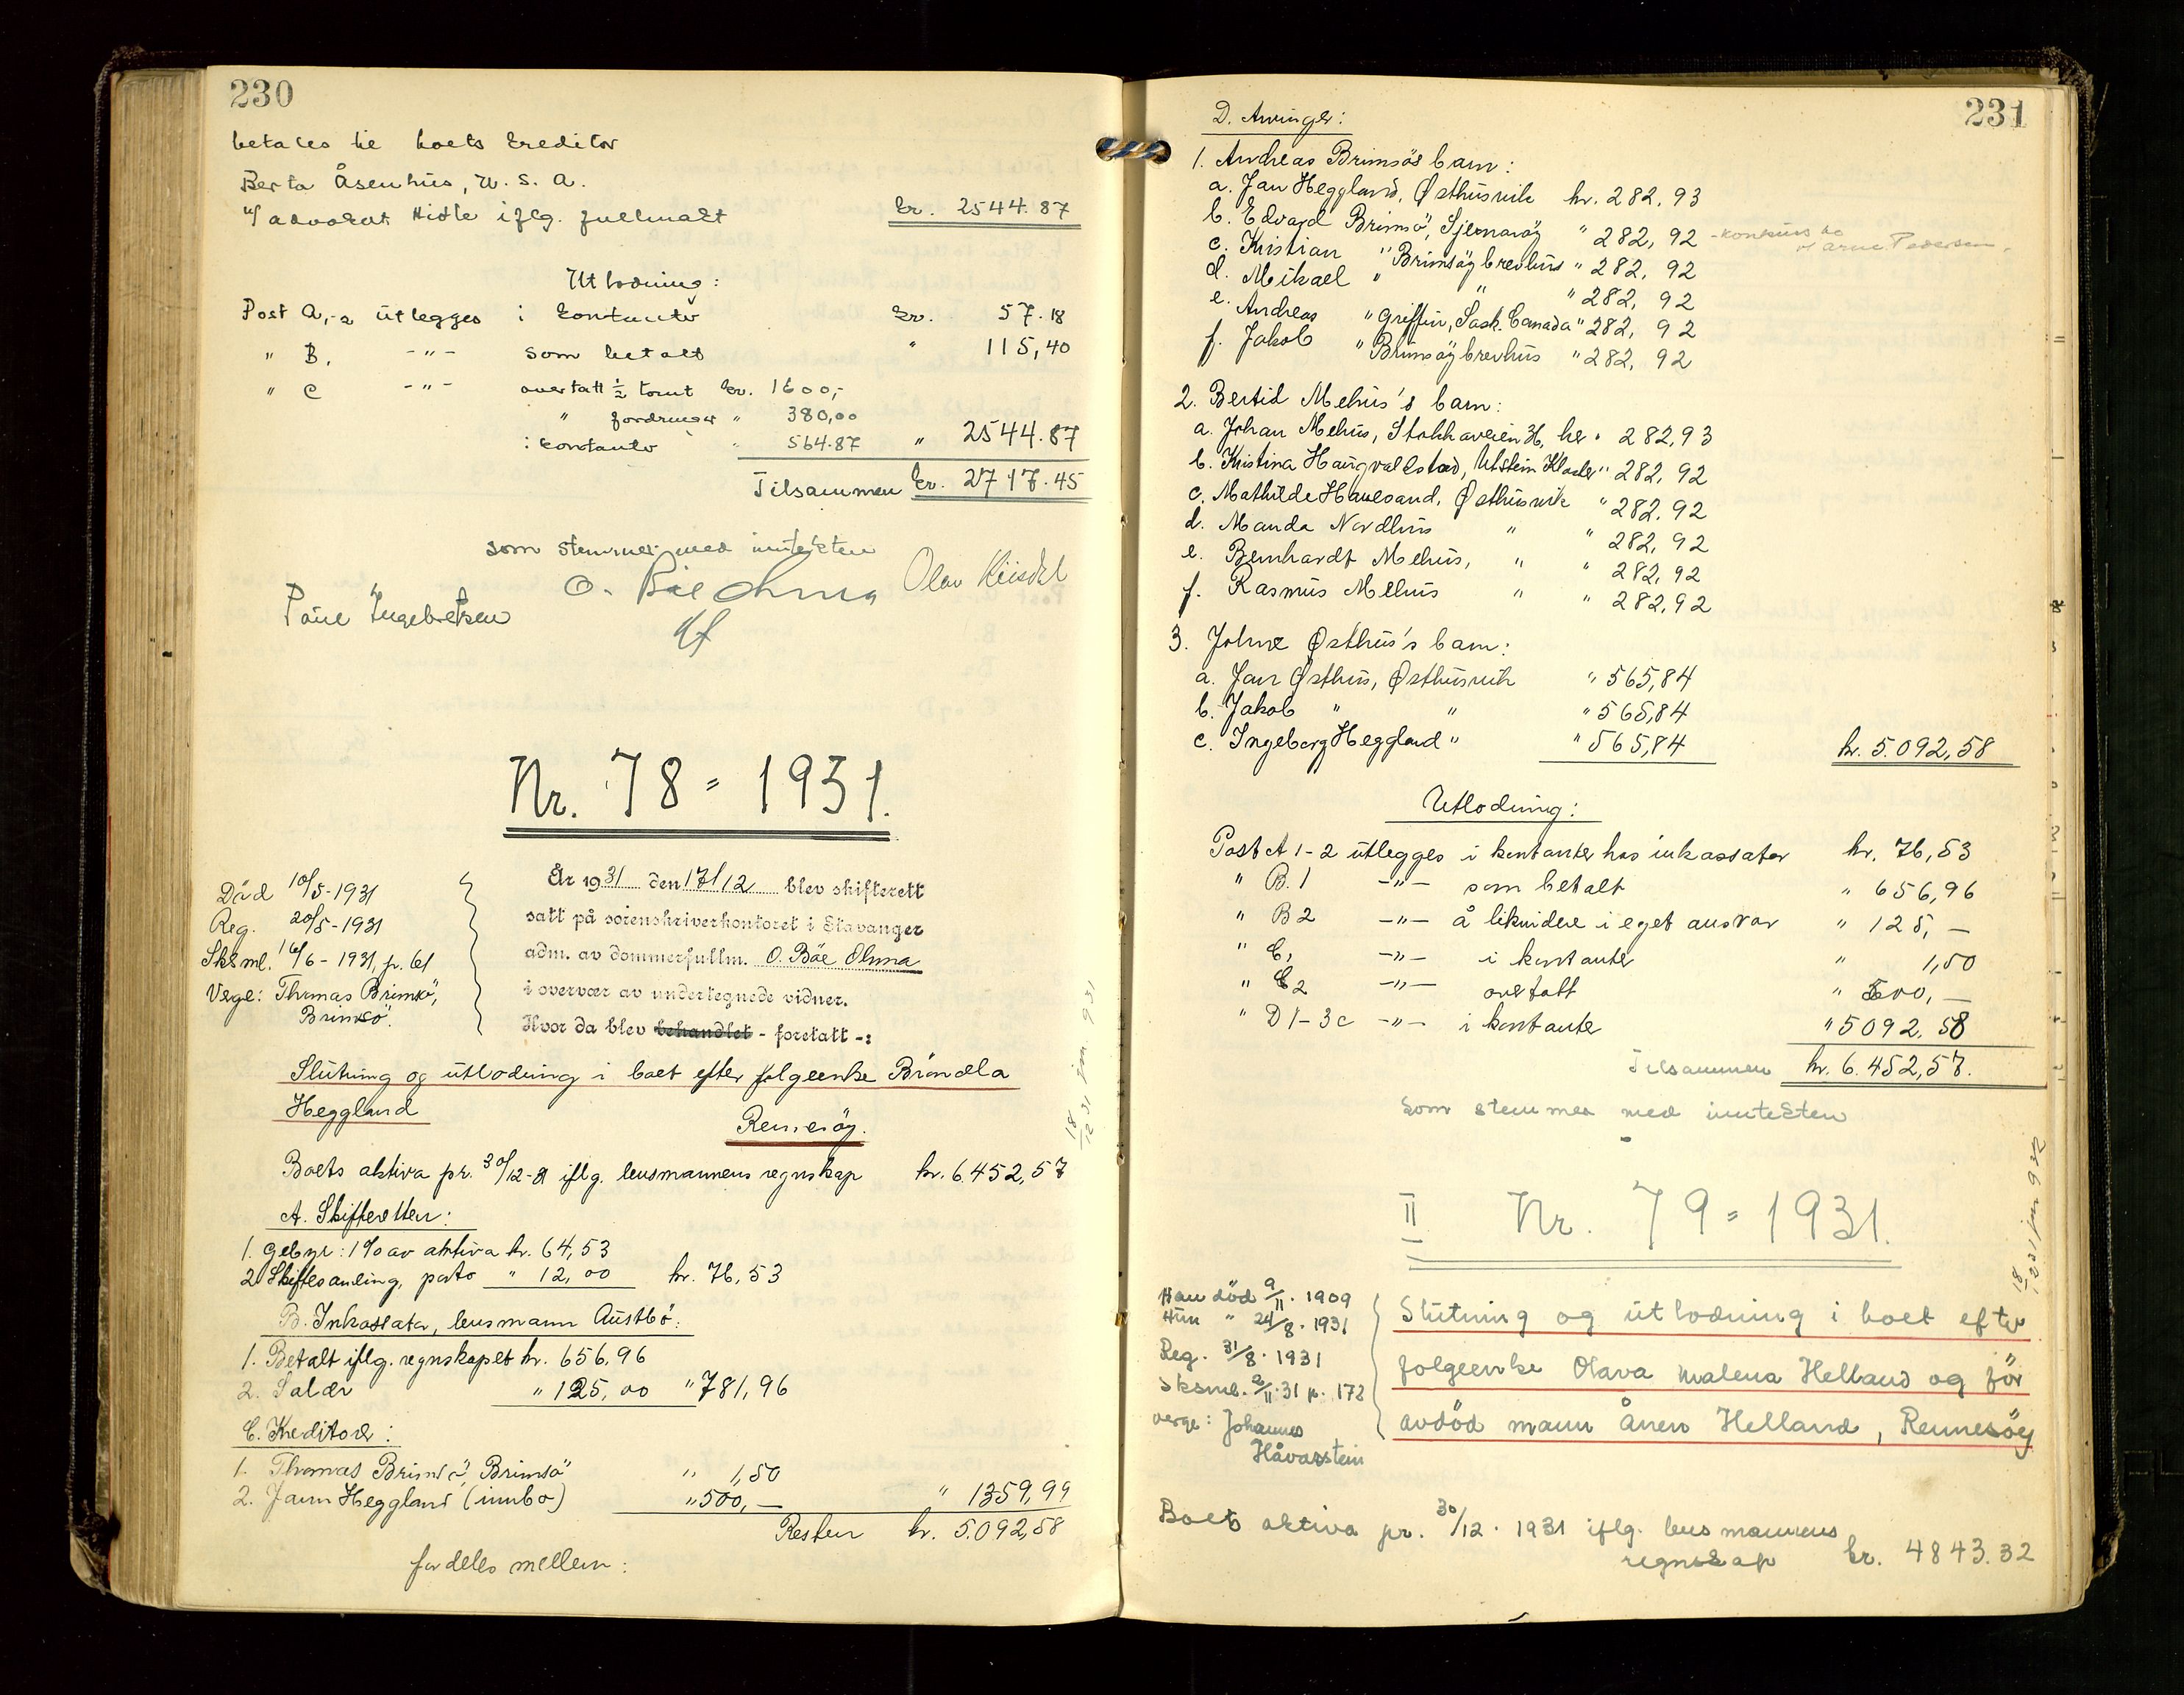 230
betales til boets kreditor
Berta Åsenhus, U. S. A.
v/ advokat Hidle iflg. fullmakt kr. 2544.87
Utlodning:
Post A, 1-2 utlegges i kontanter kr. 57.18
" B. -"- som betalt " 115,40
" C -"- overtatt ½ tomt kr. 1600,-
" fordringer " 380,00
i kontanter " 564.87 " 2544.87
Tilsammen kr. 2717.45
som stemmer med inntekten
O. Bøe Olsma Olav
Paul Ingebretsen
Nr. 78 = 1931.
Død 10/5-1931
Reg. 20/5-1931
Sks ml. 16/6 - 1931, p. 61
Verge: Thomas Brimsö,
Brimsö.
År 1931 den 17/12 blev skifterett
satt på sorenskriverkontoret i Stavanger
adm. av dommerfullm. O. Bäe Olsma
i overvær av undertegnede vidner.
Hvor da blev behandlet - foretatt -:
Slutning og utlodning i boet efter folgeenke Bröndla
Heggland
Rennesöy.
Boets aktiva pr. 30/12-31 iflg. lensmannens regnskap kr. 6.452,57
A. Skifteretten:
1. Gebyr: 1% av aktiva kr. 64,53
2. Skiftesamling, porto " 12,00 kr. 76,53
B. Inkassator, lensmann Austbö:
1. Betalt iflg. regnskapet kr. 656,96
2. Salær " 125,00 " 781,96
C. Kreditorer:
1. Thomas Brimsö, Brimsö " 1,50
2. Jann Heggland (innbo) " 500,— " 1359,99
Resten kr. 5.092,58
fordeles mellem:
18/12 31 jnr 931
231
D. Arvinger:
1. Andreas Brimsös barn:
a. Jan Heggland, Østhusvik kr. 282,93
b. Edvard Brimsö, Sjernaröy " 282,92 - konkurs bo v/ Arne Pedersen.
c. Kristian " Brimsöy brevhus " 282,92
d. Mikael " " " 282,92
e. Andreas " Griffin, Sask. Canada " 282,92
f. Jakob " Brimsöy brevhus " 282,92
2. Bertid Mehus's barn:
a. Johan Mehus, Stokkaveien 36, her " 282,93
b. Kristina Haugvallstad, Utstein Kloster " 282,92
c. Mathilde Hauesand, Østhusvik " 282,92
d. Manda Nordhus " " 282,92
e. Bernhardt Mehus, " " 282,92
f. Rasmus Mehus " " 282,92
3. Johne Østhus's barn:
a. Jan Østhus, Østhusvik " 565,84
b. Jakob " " " 565,84
c. Ingeborg Heggland " " 565,84 kr. 5.092,58
Utlodning:
Post A 1-2 utlegges i kontanter hos inkassator kr. 76,53
" B.1 -"- som betalt " 656,96
" B2 -"- å likvidere i eget ansvar " 125,—
" C, -"- i kontanter " 1,50
" C2 -"- overtatt " 500,—
" D1-3c -"- i kontanter " 5092,58
Tilsammen kr. 6.452,57.
som stemmer med inntekten
II Nr. 79 = 1931.
18/12 31 jnr 932
Han död 9/11. 1909
Hun " 24/8. 1931
Reg. 31/8. 1931
Sksml. 2/11.31 p. 172
verge: Johannes
Håvarstein
Slutning og utlodning i boet efter
folgeenke Olava Malena Helland og för
avdöd mann Ånen Helland, Rennesöy
Boets aktiva pr. 30/12. 1931 iflg. lensmannens
regnskap kr. 4843.32